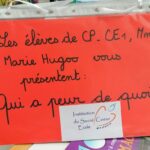 Les élèves de CP. CE1, Mme
Marie Hugoo vous
présentent:
Qui a peur de quoi
Institution
du Sacré Coeur
Ecole